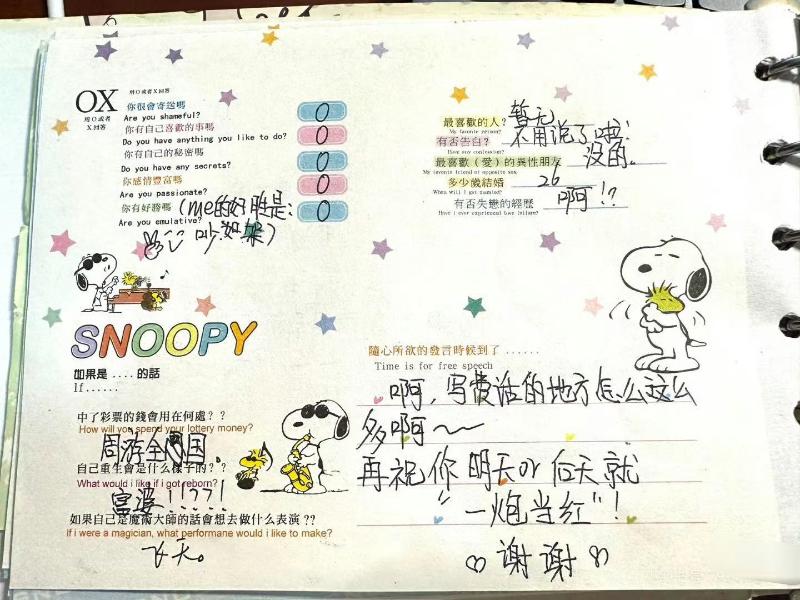 OX 用O或者X回答
用O或者
X回答
你很會寄送嗎
Are you shameful? O
你有自己喜歡的事嗎
Do you have anything you like to do? O
你有自己的秘密嗎
Do you have any secrets? O
你感情豐富嗎
Are you passionate? O
你有好勝嗎 (me的好胜是:
Are you emulative? O
吵架)
最喜歡的人? 暂无
My favorite person?
有否告白? 不用说了哦!
Have any confession?
最喜歡(愛)的異性朋友 没的。
My favorite friend of opposite sex
多少歲結婚 26
When will I get married?
有否失戀的經歷 啊!?
Have I ever experienced love failure?
SNOOPY
如果是 .... 的話
If......
中了彩票的錢會用在何處??
How will you spend your lottery money?
周游全国.
自己重生會是什么樣子的??
What would i like if i got reborn?
富婆!!??!
如果自己是魔術大師的話會想去做什么表演??
If i were a magician, what performane would i like to make?
飞天。
隨心所欲的發言時候到了......
Time is for free speech
啊,写费话的地方怎么这么
多啊~~
再祝你明天or后天就
"一炮当红"!
谢谢